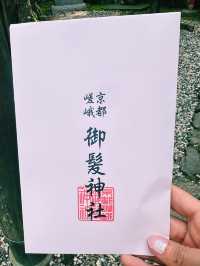 京都
嵯峨
御髪神社